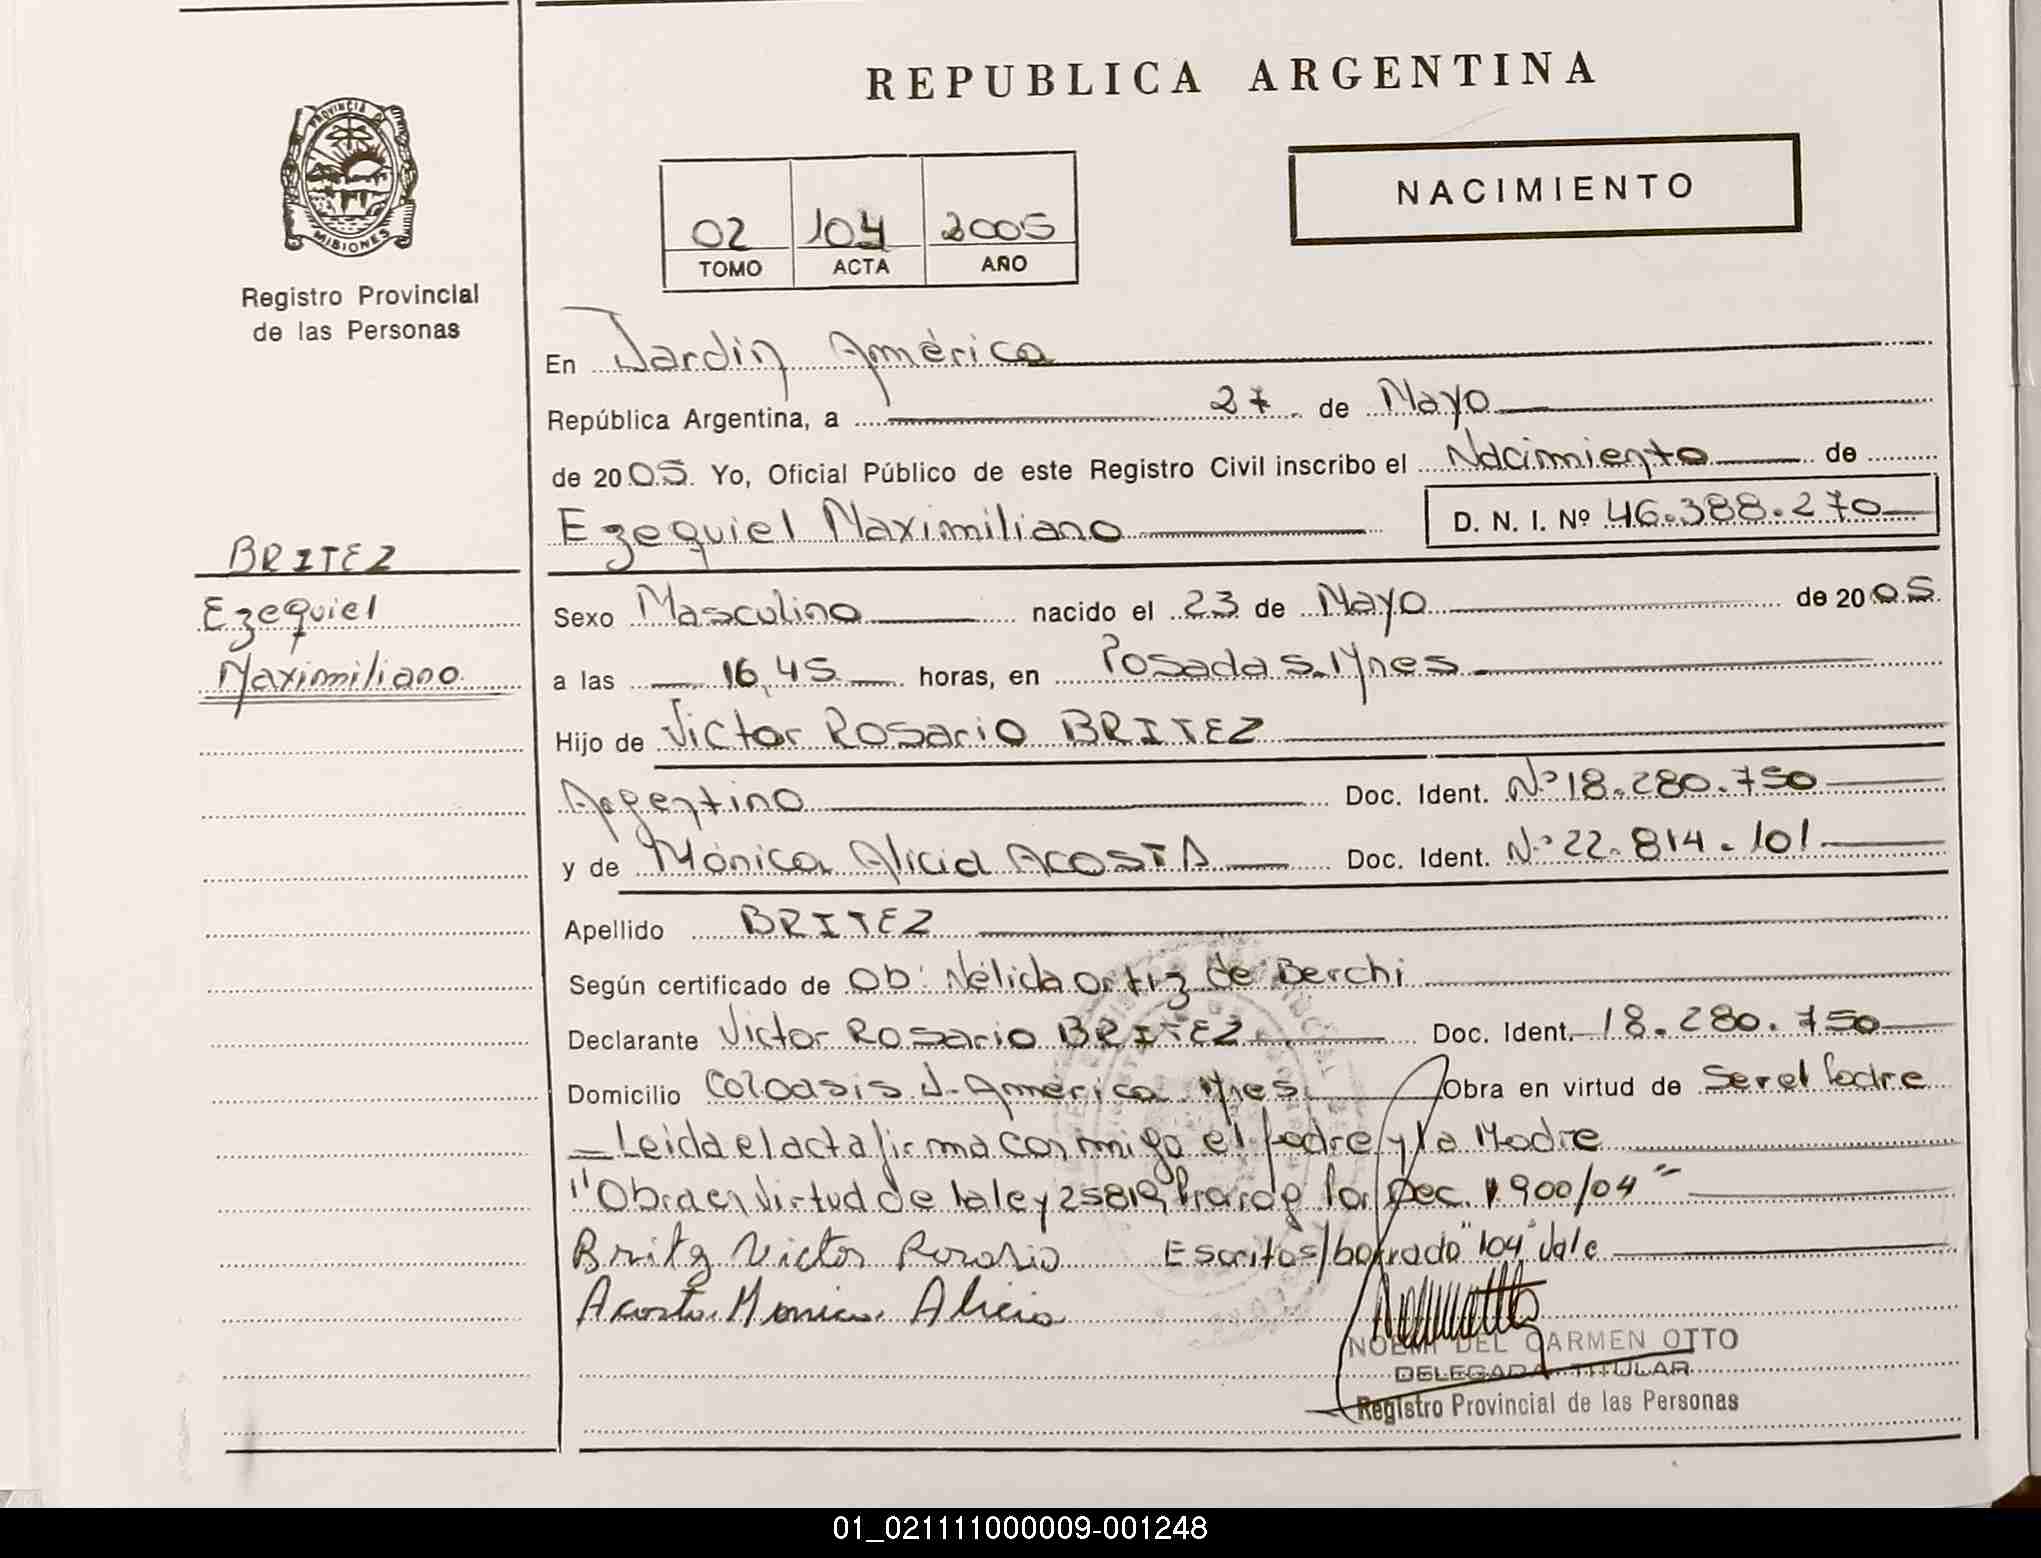 REPUBLICA ARGENTINA
PROVINCIA DE
MISIONES
Registro Provincial
de las Personas
NACIMIENTO
02 104 2005
TOMO ACTA AÑO
En Jardín América
República Argentina, a 27 de Mayo
de 2005. Yo, Oficial Público de este Registro Civil inscribo el Nacimiento de
Ezequiel Maximiliano D. N. I. Nº 46.388.270
BRITEZ
Ezequiel
Maximiliano
Sexo Masculino nacido el 23 de Mayo de 2005.
a las 16,45 horas, en Posadas. Mnes
Hijo de Victor Rosario BRITEZ
Argentino Doc. Ident. Nº 18.280.750
y de Mónica Alicia ACOSTA Doc. Ident. Nº 22.814.101
Apellido BRITEZ
Según certificado de Ob: Nélida Ortiz de Berchi
Declarante Victor Rosario BRITEZ Doc. Ident. 18.280.750
Domicilio Col. Oasis. J. América Mnes Obra en virtud de Ser el Padre
Leida el acta firma conmigo el Padre y la Madre
"Obra en virtud de la ley 25819, Prorog Por Dec. 1900/04"
Britez Victor Rosario Escritos/borrado "104" Vale
Acosta Monica Alicia
NOEMI DEL CARMEN OTTO
DELEGADA TITULAR
Registro Provincial de las Personas
01_021111000009-001248